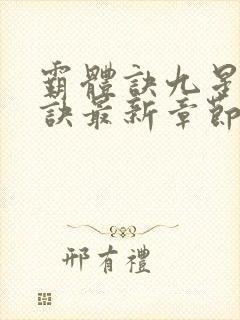 霸體訣九星
訣最新章節
邢有禮